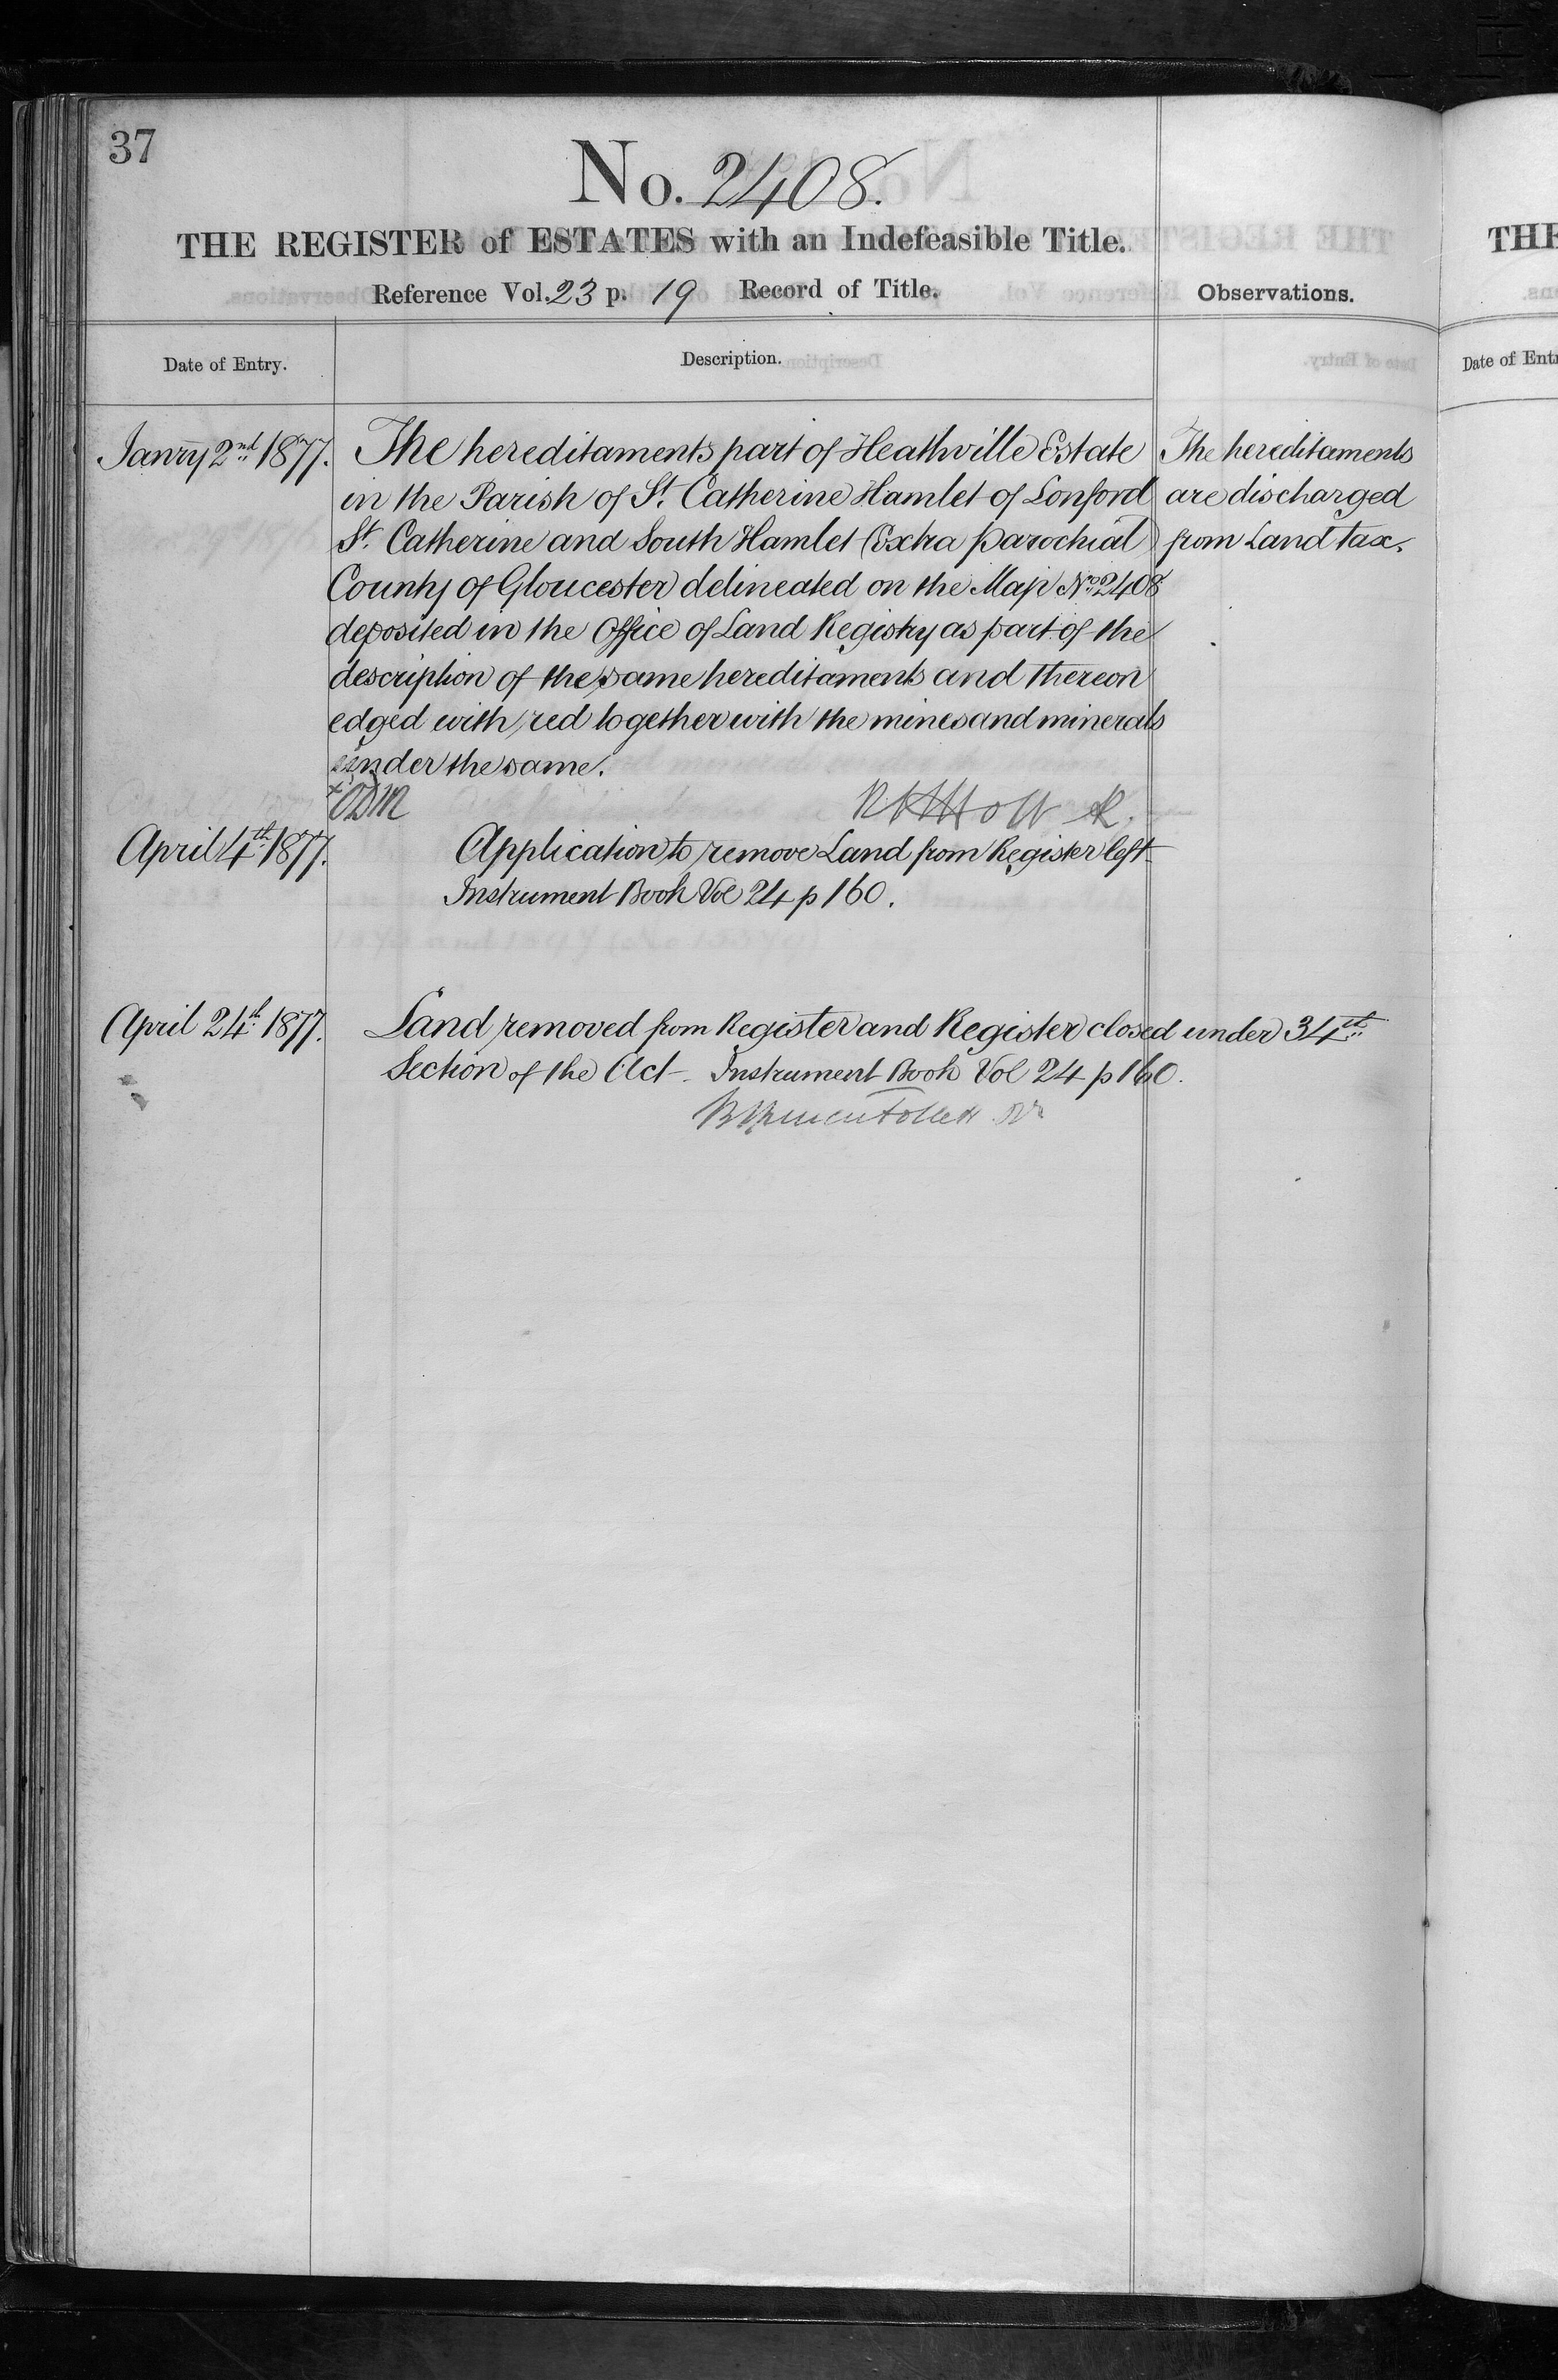 37
No. 2408.
THE REGISTER of ESTATES with an Indefeasible Title.
Reference Vol. 23 p. 19 Record of Title.
Observations.
Date of Entry.
Description.
Janry 2nd 1877.
The hereditaments part of Heathville Estate
in the Parish of St. Catherine Hamlet of Lonford
St. Catherine and South Hamlet (Extra parochial)
County of Gloucester delineated on the Map No 2408
deposited in the Office of Land Registry as part of the
description of the same hereditaments and thereon
edged with red together with the mines and minerals
under the same.
The hereditaments
are discharged
from Land tax.
April 4th 1877.
Application to remove Land from Register left
Instrument Book Vol 24 p 160.
April 24th 1877.
Land removed from Register and Register closed under 34th
Section of the Act. Instrument Book Vol 24 p 160.
THE
Date of Ent